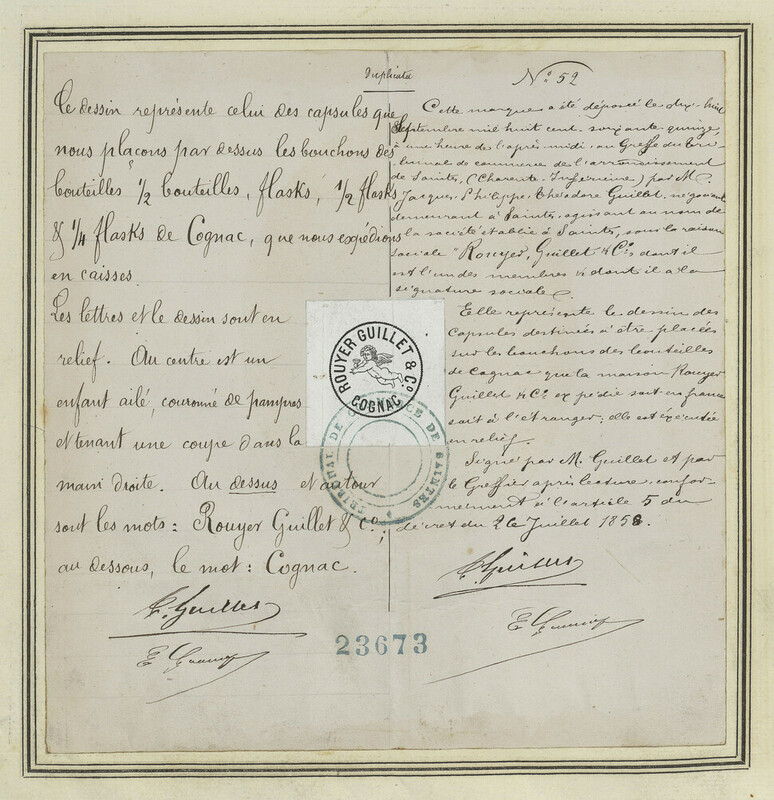 Duplicata
Le dessin représente celui des capsules que
nous plaçons par dessus les bouchons des
bouteilles 1/2 bouteilles, flasks, 1/2 flasks
& 1/4 flasks de Cognac, que nous expédions
en caisses.
Les lettres et le dessin sont en
relief. Au centre est un
enfant ailé, couronné de pampres
et tenant une coupe dans la
main droite. Au dessus et autour
sont les mots: Rouyer Guillet & Co;
au dessous, le mot: Cognac.
T. Guillet
No 52
Cette marque a été déposée le dix-huit
Septembre mil huit cent soixante quinze,
à une heure de l'après midi, au Greffe du Tri
bunal de commerce de l'arrondissement
de Saintes, (Charente-Inférieure) par M.
Jacques, Philippe, Théodore Guillet, négociant
demeurant à Saintes, agissant au nom de
la société établie à Saintes, sous la raison
sociale "Rouyer, Guillet & Cie, dont il
est l'un des membres & dont il a la
signature sociale.
Elle représente le dessin des
capsules destinées à être placées
sur les bouchons des bouteilles
de Cognac que la maison Rouyer
Guillet & Cie expédie soit en france
soit à l'étranger; elle est éxécutée
en relief.
Signé par M. Guillet et par
le Greffier après lecture, confor-
mément à l'article 5 du
décret du 26 Juillet 1858.
T. Guillet
ROUYER GUILLET & Co
COGNAC
TRIBUNAL DE COMMERCE DE SAINTES
23673